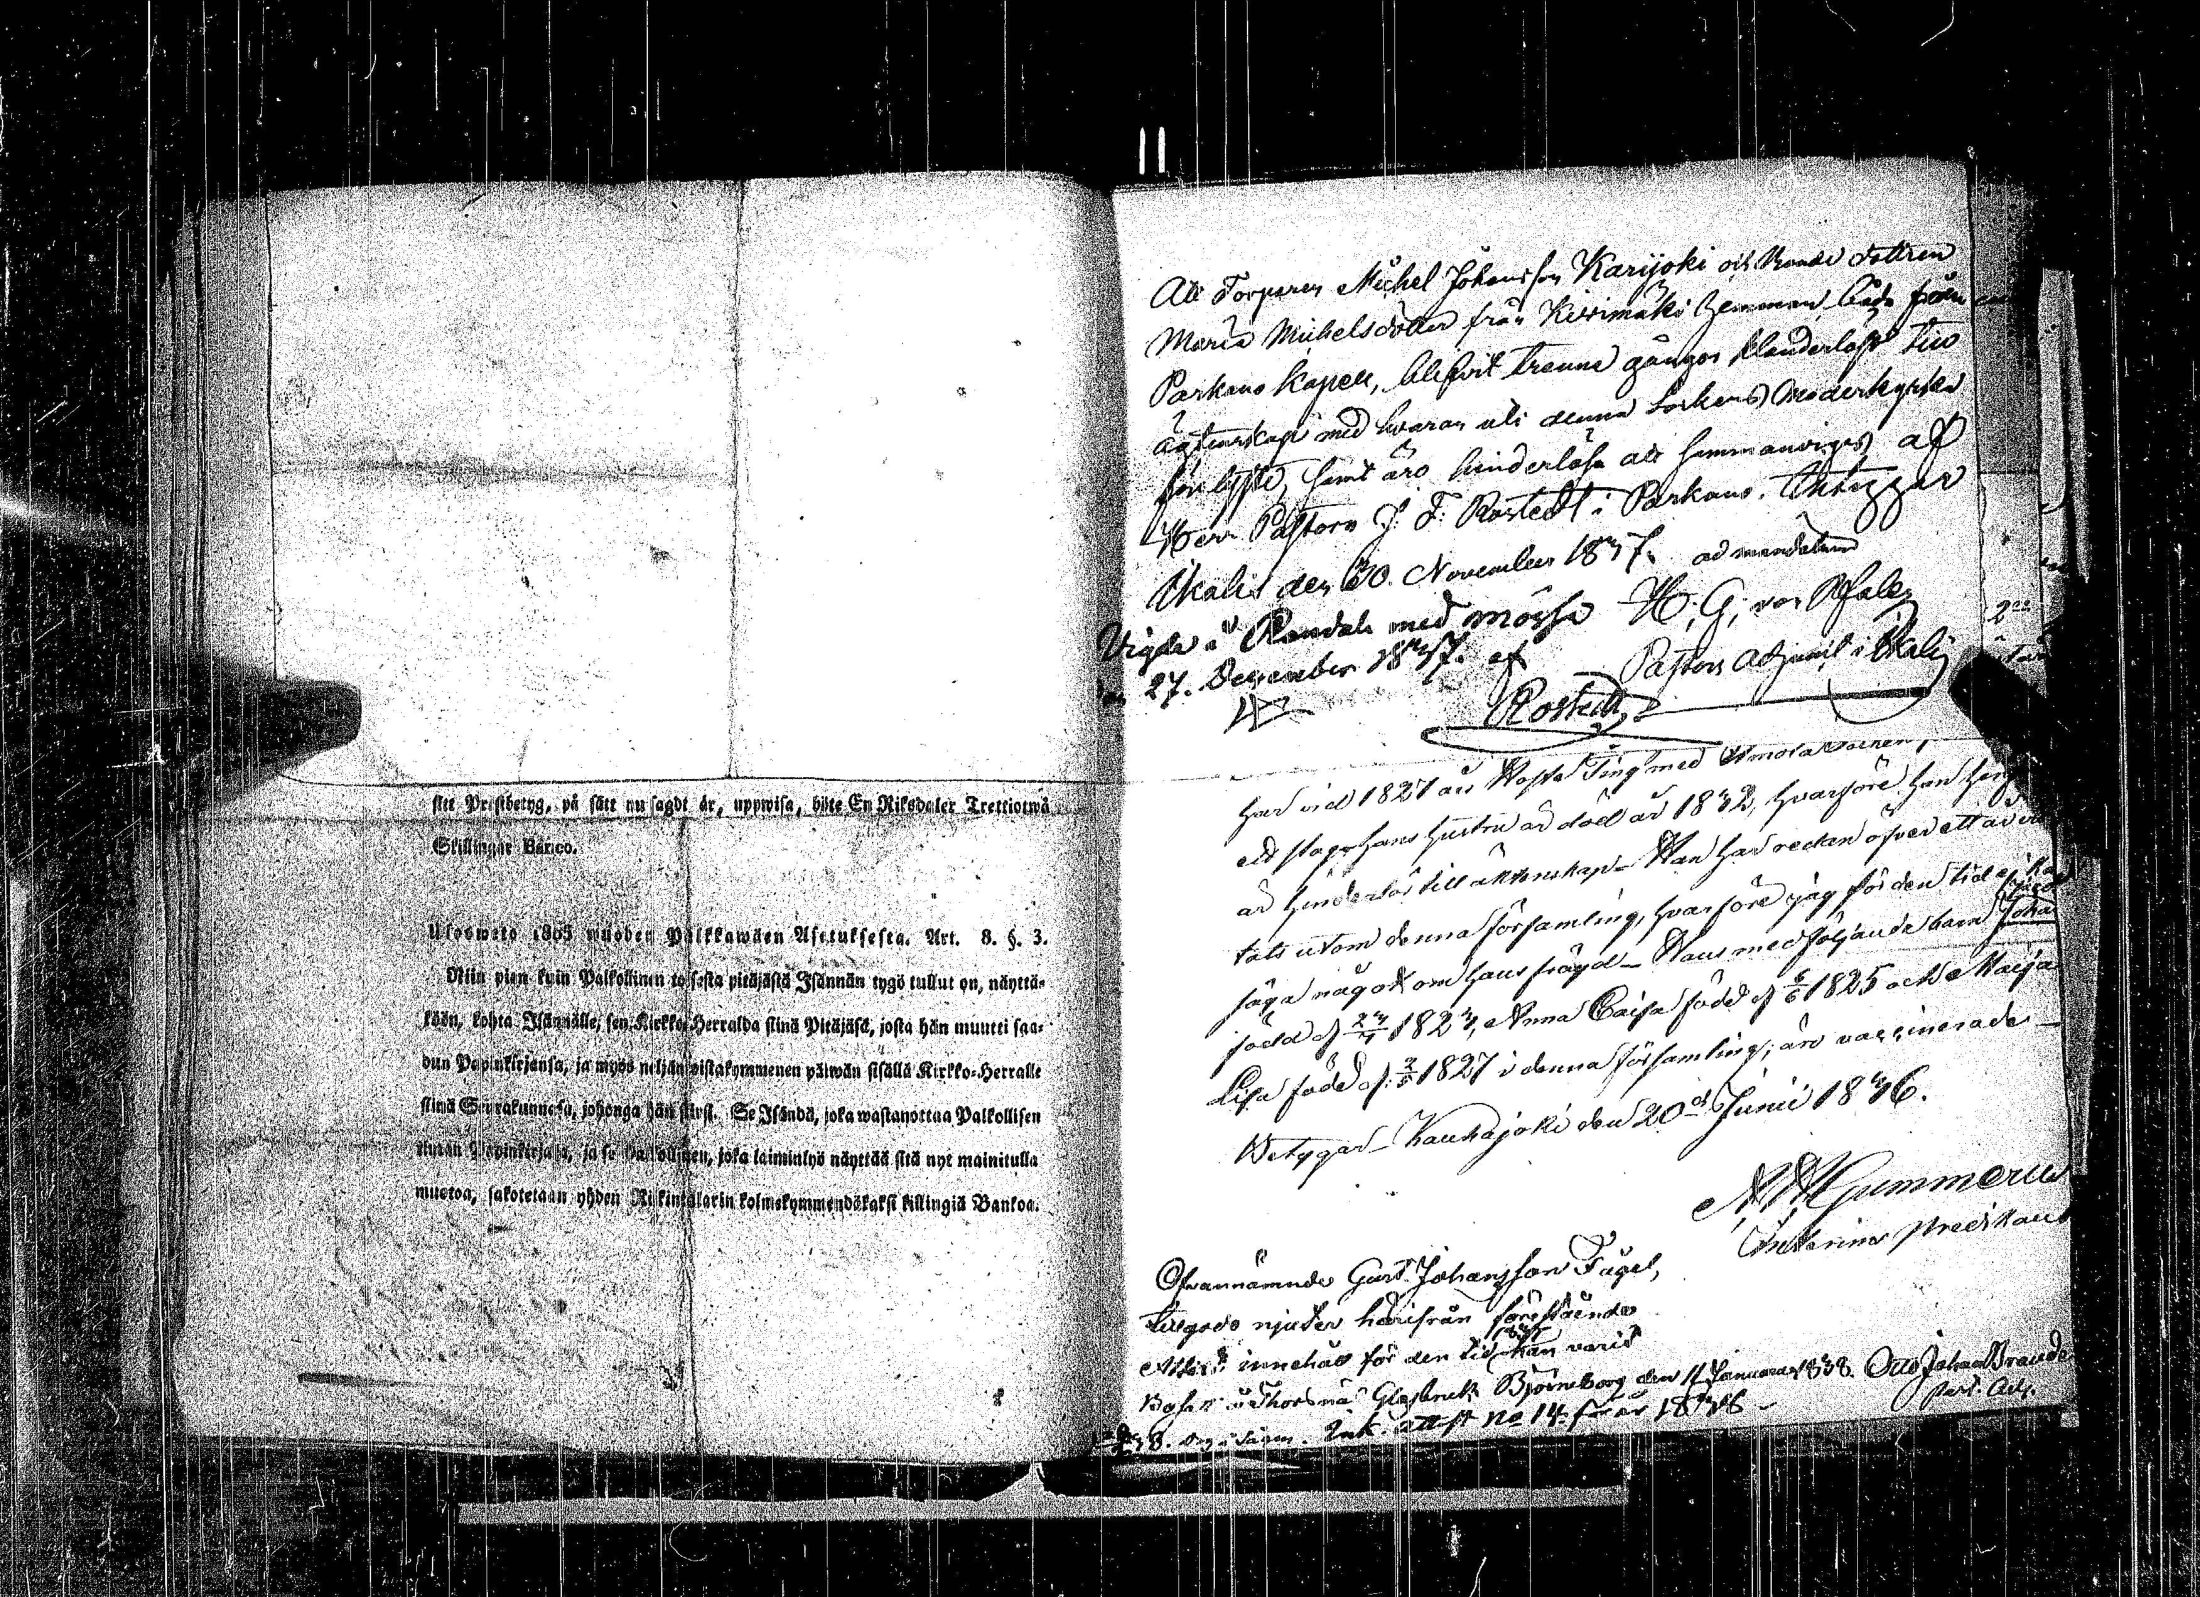 sitt Prestbetyg, på sätt nu sagdt är, uppwisa, böte En Riksdaler Trettiotwå
Skillingar Banco.
Ulosweto 1805 wuoden Palkkawäen Asetuksesta. Art. 8. §. 3.
Niin pian kuin Palkollinen toisesta pitäjästä Isännän tygö tullut on, näyttä-
köön, kohta Isännälle, sen Kirkko-Herralda siinä Pitäjäsä, josta hän muutti saa-
dun Papinkirjansa, ja myös neljän toistakymmenen päiwän sisällä Kirkko-Herralle
siinä Seurakunnasa, johonga hän siirsi. Se Isändä, joka wastanottaa Palkollisen
ilman Papinkirjata, ja se Palkollinen, joka laiminlyö näyttää sitä nyt mainitulla
muotoa, sakotetaan yhden Riikintalarin kolmekymmendäkaksi killingiä Bankoa.
Att Torparen Michel Johansson Karijoki och Bonde dottren
Maria Michelsdotter från Kivimäki hemman, både från
Parkano Kapell, blifvit trenne gångor klanderlöst till
ägtenskap med hvaran uti denna Sockens Moderkyrka
förlyste, samt äro hinderlöse att sammanvigas af
Herr Pastorn J. F. Rostedt i Parkano. Intygar
Ikalis den 30. November 1837. ad mandatum
H. G. von Pfaler
Pastors Adjunct i Ikalis
Vigde å med mössa
27. December 1837. af
Rostedt
har vid 1827 års Ting med
ed hans hustru är död år 1832, hvarföre han
är hinderlös till äktenskap. Han har redan öfver ett år
tals utom denna församling, hvarföre jag för den tid ej kan
säga något om hans frägd. Hans medföljande barn Joha
född d 1823, Anna Caisa född d 1825 och Maija
Lisa född d. 1827 i denna församling; äro vaccinerade
Betygar Kauhajoki den 20d Junii 1836.
Gummerus
Predikant
Ofvannämnde Gust. Johansson Fågel,
tillgodo njuter härifrån föreståenda
Attest innehåll för den tid han varit
Glasbruk Björneborg den 11 Januari 1838. Otto Johan Brander
Past. Adj.
Ink. attest No 14 för år 1836